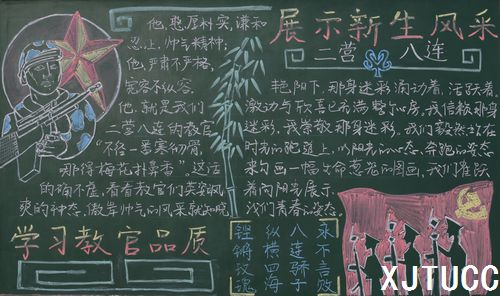 他,憨厚朴实,谦和
忍上,帅气精神;
他,严肃不严格,
宽容不纵容。
他,就是我们
二营八连的教官
"不经一番寒彻骨
那得梅花扑鼻香",这话
的确不差,看看教官们英姿飒
爽的神态,傲岸帅气的风采就知晓
学习教官品质
展示新生风采
二营 八连
艳阳下,那身迷彩涌动着,活跃着。
激动与欣喜已布满整个心房,我信赖那身
迷彩,我崇敬那身迷彩。我们毅然站在
时光的跑道上,以阳光的心态、奔跑的姿态
来勾画一幅生命葱茏的图画,我们雀跃
着向阳光展示
我们青春的姿态。
永不言败
八连骄子
纵横四海
铿锵玫瑰
XJTUCC